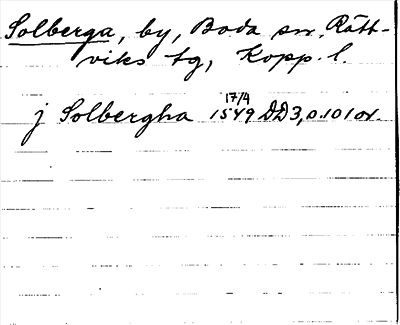 Solberga, by, Boda sn. Rätt-
viks tg, Kopp. l.
j Solbergha 17/4 1549 DD3, o.101 or.